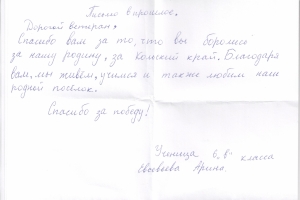 Письмо в прошлое.
Дорогой ветеран,
Спасибо вам за то, что вы боролись
за нашу родину, за Кольский край. Благодаря
вам, мы живём, учимся и также любим наш
родной посёлок.
Спасибо за победу!
Ученица 6 „В" класса
Арина